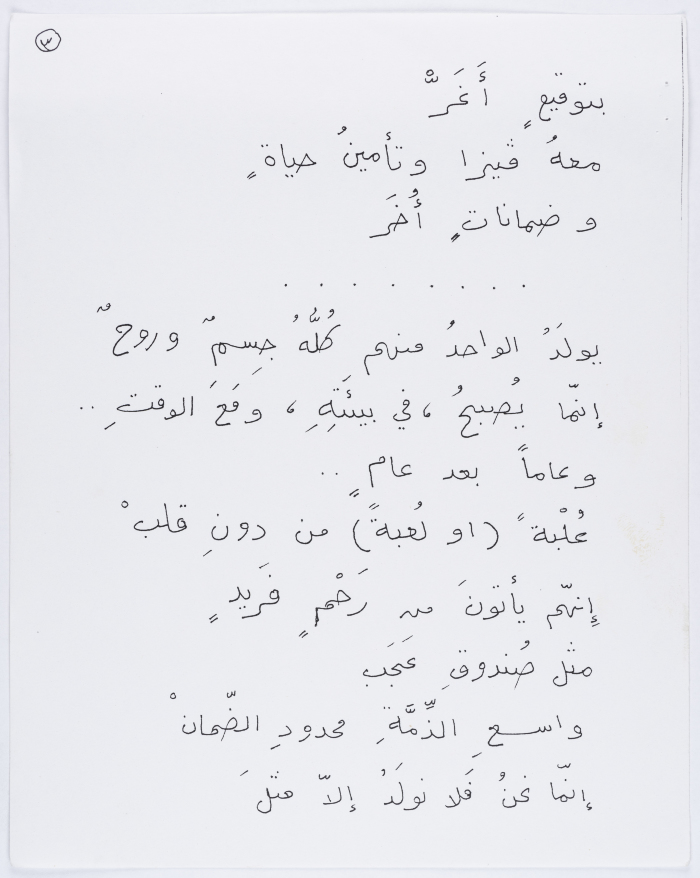 ٣
بتوقيعٍ أَغَرّْ
معهُ ڤيزا وتأمينُ حياةٍ
و ضماناتٍ أُخَر
. . . . . . . . .
يولَدُ الواحدُ منهم كُلُّهُ جِسمٌ وروحٌ
إنّما يُصبحُ ، في بيئَتِهِ ، ومَعَ الوقتِ ..
وعاماً بعد عامٍ ..
عُلْبةً (او لُعبةً) من دونِ قلبْ
إِنهّم يأتونَ من رَحْمٍ فَريدٍ
مثل صُندوقِ عَجَب
واسعِ الذِّمَّةِ محدودِ الضّمانْ
إنّما نحنُ فَلا نولَدُ إلاّ مثلَ